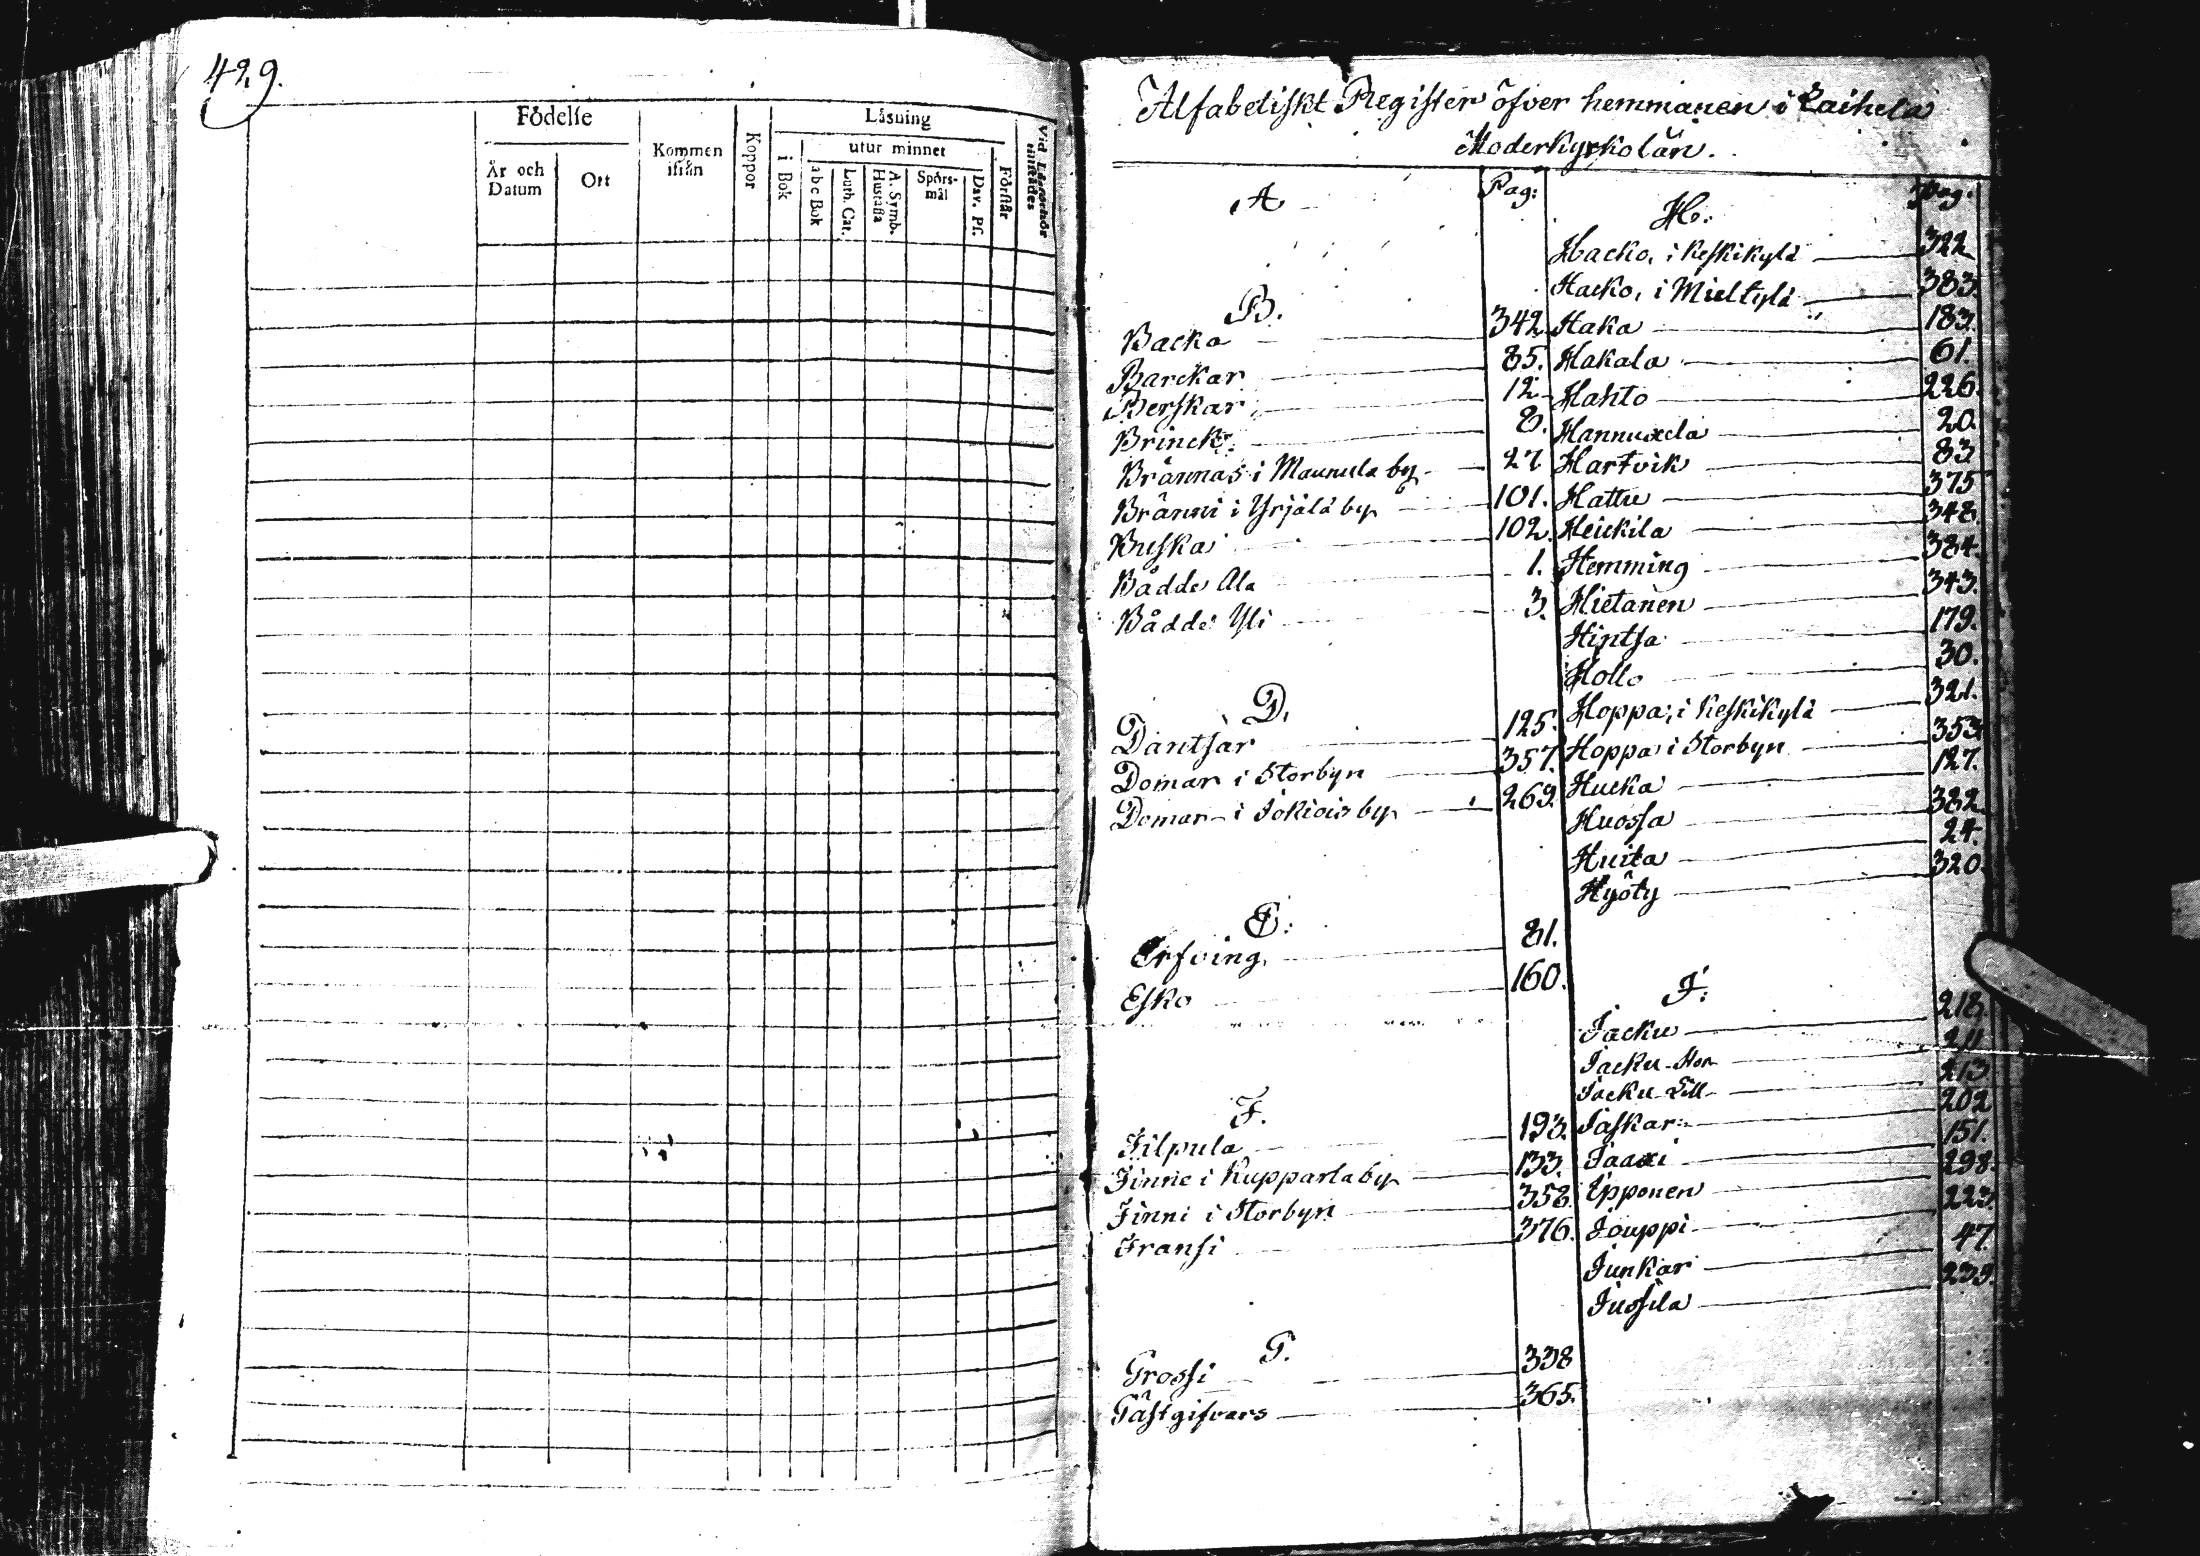 429.
Födelse
Läsning
Vid Läseförhör tillstädes
År och Datum
Ort
Kommen ifrån
Koppor
i Bok
utur minnet
Förstår
abc Bok
Luth. Cat.
A. Symb. Hustafla
Spörsmål
Dav. Ps.
Alfabetiskt Register öfver hemmanen i Laihela
Moderkyrkolän.
A
Pag:
B.
Backa 342
Barckar 85.
Berskar 12
Brinck 8.
Brännas i Maunula by 27
Bränni i Yrjälä by 101.
Buska 102.
Bådde Ala 1.
Bådde Yli 3.
D.
Dantsar 125.
Domar i Storbyn 357.
Domar i Jokiois by 269.
E.
Erfving 81.
Esko 160.
F.
Filpula 193.
Finne i Kupparla by 133.
Finni i Storbyn 358.
Fransi 376.
G.
Grossi 338
Gästgifvars 365.
H.
Pag:
Hacko, i Keskikylä 322
Hacko, i Mieltylä 383.
Haka 183.
Hakala 61.
Hahto 226.
Hannuxela 20.
Hartvik 83
Hattu 375
Heickila 348.
Hemming 384.
Hietanen 343.
Hintsa 179.
Hollo 30.
Hoppa, i Keskikylä 321.
Hoppa i Storbyn 353.
Hucka 127.
Huossa 382
Huita 24.
Hyöty 320.
J.
Jacku 218.
Jacku Stor 211
Jacku Lill 213
Jaskar 202
Jaaxi 151.
Ipponen 298.
Jouppi 223
Junkar 47.
Jussila 239.